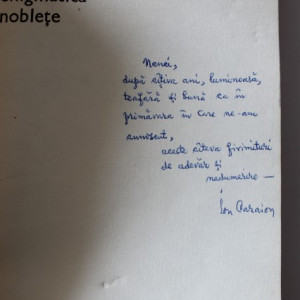 enigmatica
noblețe
Nenei,
după cîțiva ani, luminoasă,
teafără și bună ca în
primăvara în care ne-am
cunoscut,
aceste cîteva firimituri
de adevăr și
nedumerire —
Ion Caraion